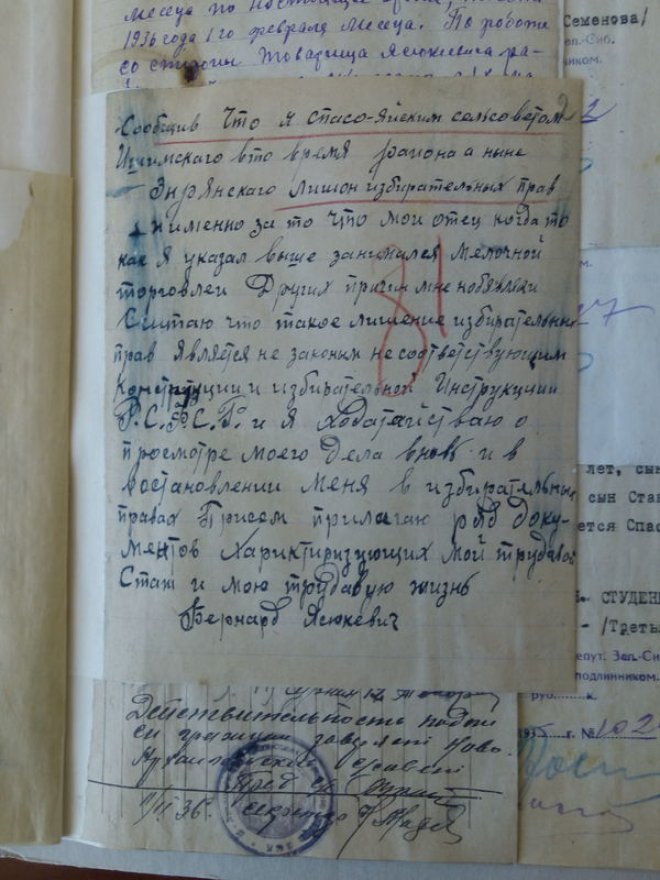 месеца по настоящее
1936 года 1го февраля месеца. По работе
со стороны товарища Ясюкевича
Семенова/
2
Сообщив что я спасо-яйским сельсоветом
Ишимскаго вто время района а ныне
Зырянскаго лишон избирательных прав
и именно за то что мой отец когда то
как я указал выше занимался мелочной
торговлей Других причин мне
Считаю что такое лишение избирательных
прав является не законым несоответствующим
Конституции и избирательной Инструкции
Р.С.Ф.С.Р. и я ходатайствую о
просмотре моего дела вновь и в
востановлении меня в избирательных
правах Присем прилагаю ряд доку-
ментов Характиризующих мой трудавой
Стаж и мою трудавую жизнь
Бернард Ясюкевич
31
лет, сын
сын Стан
ется Спас
СТУДЕН
- /Треть
епут. Зап.-Сиб.
подлинником.
руб.........к.
г. №102
Действительность подпи
си гражданин заверяет Ново
Архангельский
Пред
11/II 36г. секретарь